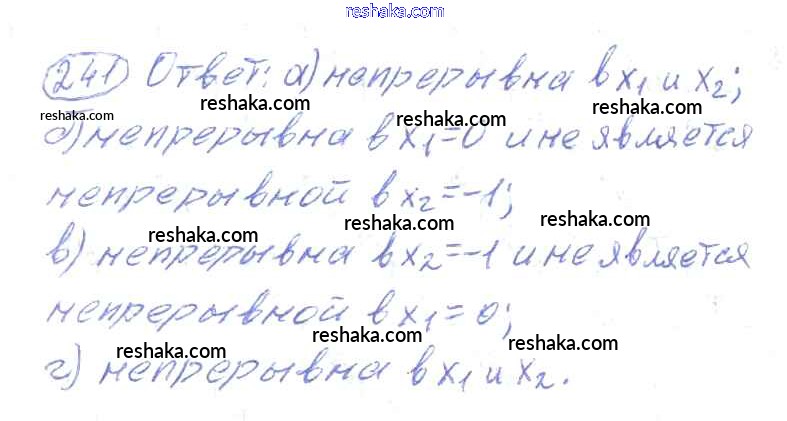 reshaka.com
241 Ответ: а) непрерывна в x₁ и x₂;
reshaka.com reshaka.com
б) непрерывна в x₁=0 и не является
reshaka.com reshaka.com
непрерывной в x₂=-1;
reshaka.com reshaka.com
в) непрерывна в x₂=-1 и не является
непрерывной в x₁=0;
reshaka.com reshaka.com
г) непрерывна в x₁ и x₂.
reshaka.com reshaka.com